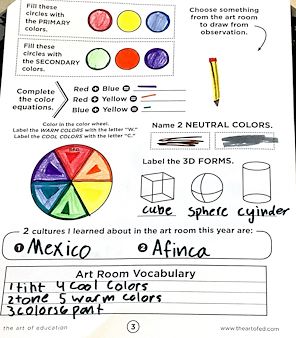 Fill these
circles with
the PRIMARY
colors.
Choose something
from the art room
to draw from
observation.
Fill these
circles with
the SECONDARY
colors.
Complete
the color
equations.
Red + Blue =
Red + Yellow =
Blue + Yellow =
Color in the color wheel.
Label the WARM COLORS with the letter "W."
Label the COOL COLORS with the letter "C."
Name 2 NEUTRAL COLORS.
Label the 3D FORMS.
cube sphere cyinder
2 cultures I learned about in the art room this year are:
1 Mexico 2 Afinca
Art Room Vocabulary
1 tiht 4 cool colors
2 tone 5 warm colors
3 colors 6 pant
the art of education 3 www.theartofed.com